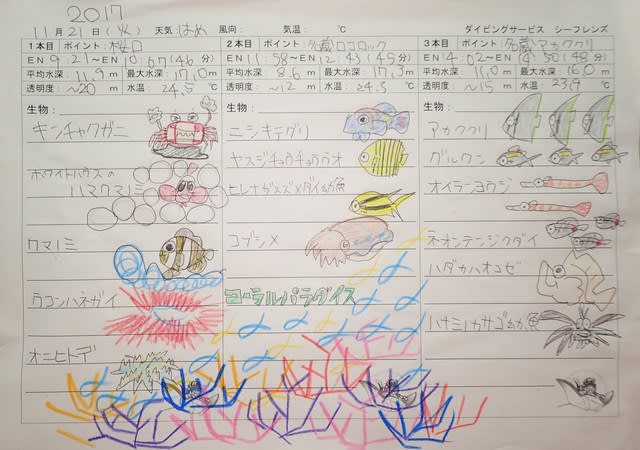 2017
11月21日(火) 天気:はれ 風向: 気温: ℃ ダイビングサービス シーフレンズ
1本目 ポイント:桜口
EN 9:21〜EX 10:07(46分)
平均水深:11.9m 最大水深:17.0m
透明度:〜20m 水温:24.5℃
生物:
キンチャクガニ
ホワイトハウスの
ハマクマノミ
クマノミ
ウコンハネガイ
オニヒトデ
2本目 ポイント:名蔵ロコロック
EN 11:58〜EX 12:43(45分)
平均水深:8.6m 最大水深:17.3m
透明度:〜12m 水温:24.3℃
生物:
ニシキテグリ
ヤスジチョウチョウウオ
ヒレナガスズメダイ幼魚
コブシメ
コーラルパラダイス
3本目 ポイント:名蔵アカククリ
EN 4:02〜EX 4:50(48分)
平均水深:11.0m 最大水深:16.0m
透明度:〜15m 水温:23.9℃
生物:
アカククリ
グルクン
オイランヨウジ
ネオンテンジクダイ
ハダカハオコゼ
ハナミノカサゴ幼魚